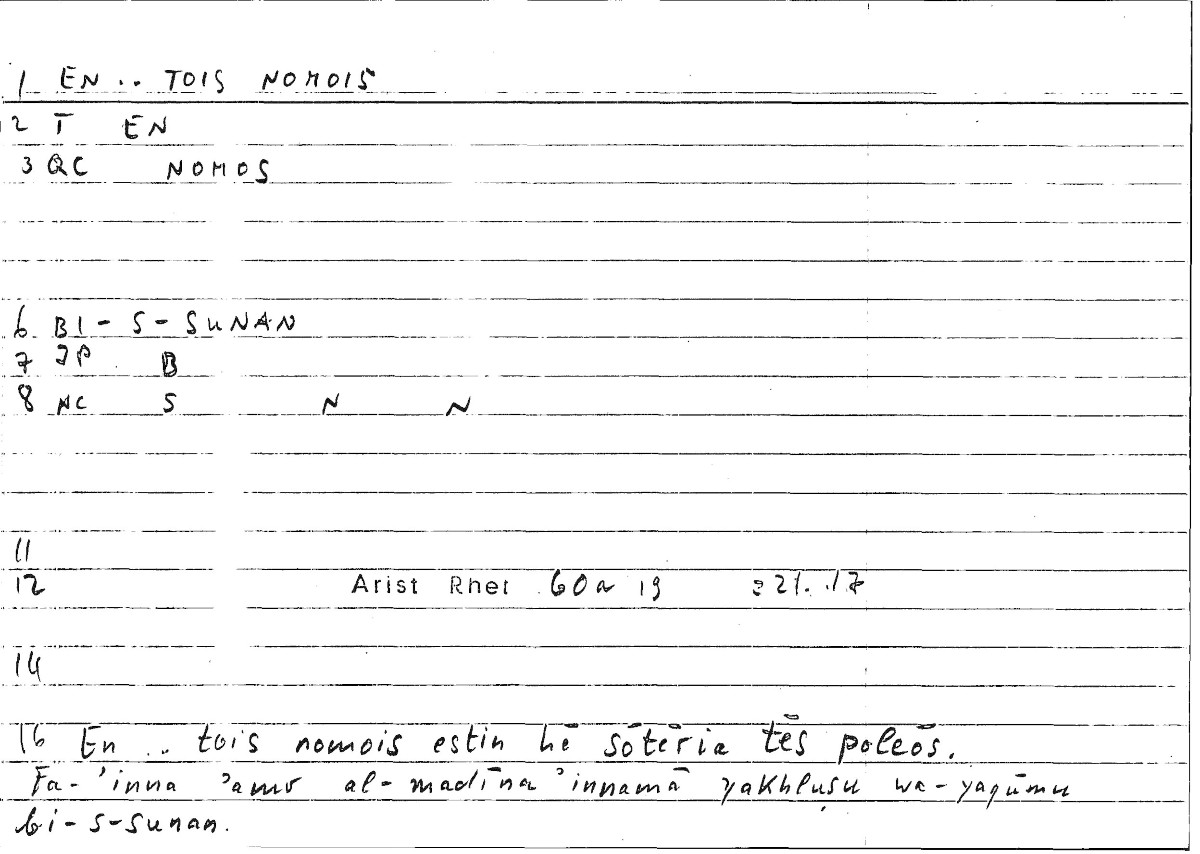 1 EN .. TOIS NOMOIS
2 T EN
3 QC NOMOS
6 BI-S-SUNAN
7 JP B
8 NC S N N
11
12 Arist Rhet 60a 19 : 21. 17
14
16 En .. tois nomois estin hē sōtēria tēs poleōs.
Fa-'inna 'amr al-madīna 'innamā yakhlusu wa-yaqūmu
bi-s-sunan.